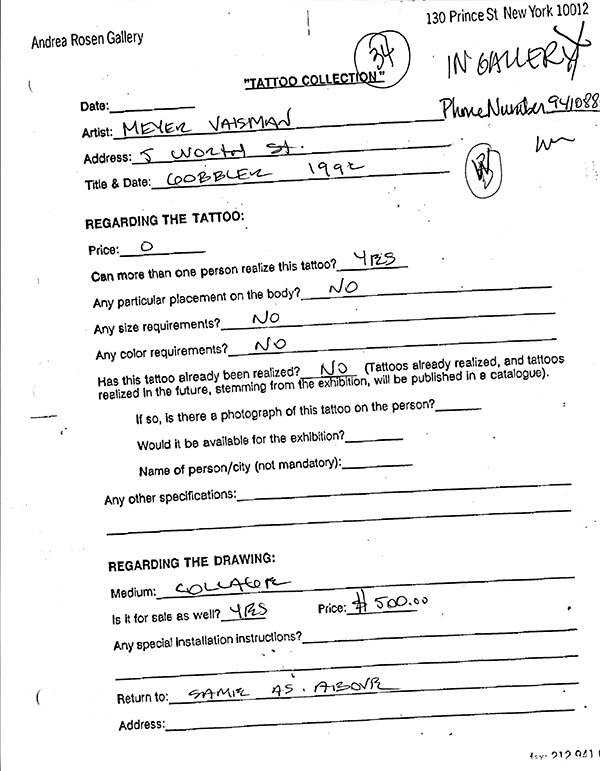 130 Prince St New York 10012
Andrea Rosen Gallery
34
IN GALLERY
"TATTOO COLLECTION"
Date:
Phone Number 941088
Artist: MEYER VAISMAN
Address: 5 WORTH St.
Title & Date: GOBBLER 1992
REGARDING THE TATTOO:
Price: 0
Can more than one person realize this tattoo? YES
Any particular placement on the body? NO
Any size requirements? NO
Any color requirements? NO
Has this tattoo already been realized? NO (Tattoos already realized, and tattoos
realized in the future, stemming from the exhibition, will be published in a catalogue).
If so, is there a photograph of this tattoo on the person?
Would it be available for the exhibition?
Name of person/city (not mandatory):
Any other specifications:
REGARDING THE DRAWING:
Medium: COLLAGE
Is it for sale as well? YES Price: $ 500.00
Any special installation instructions?
Return to: SAME AS. ABOVE
Address:
212 941